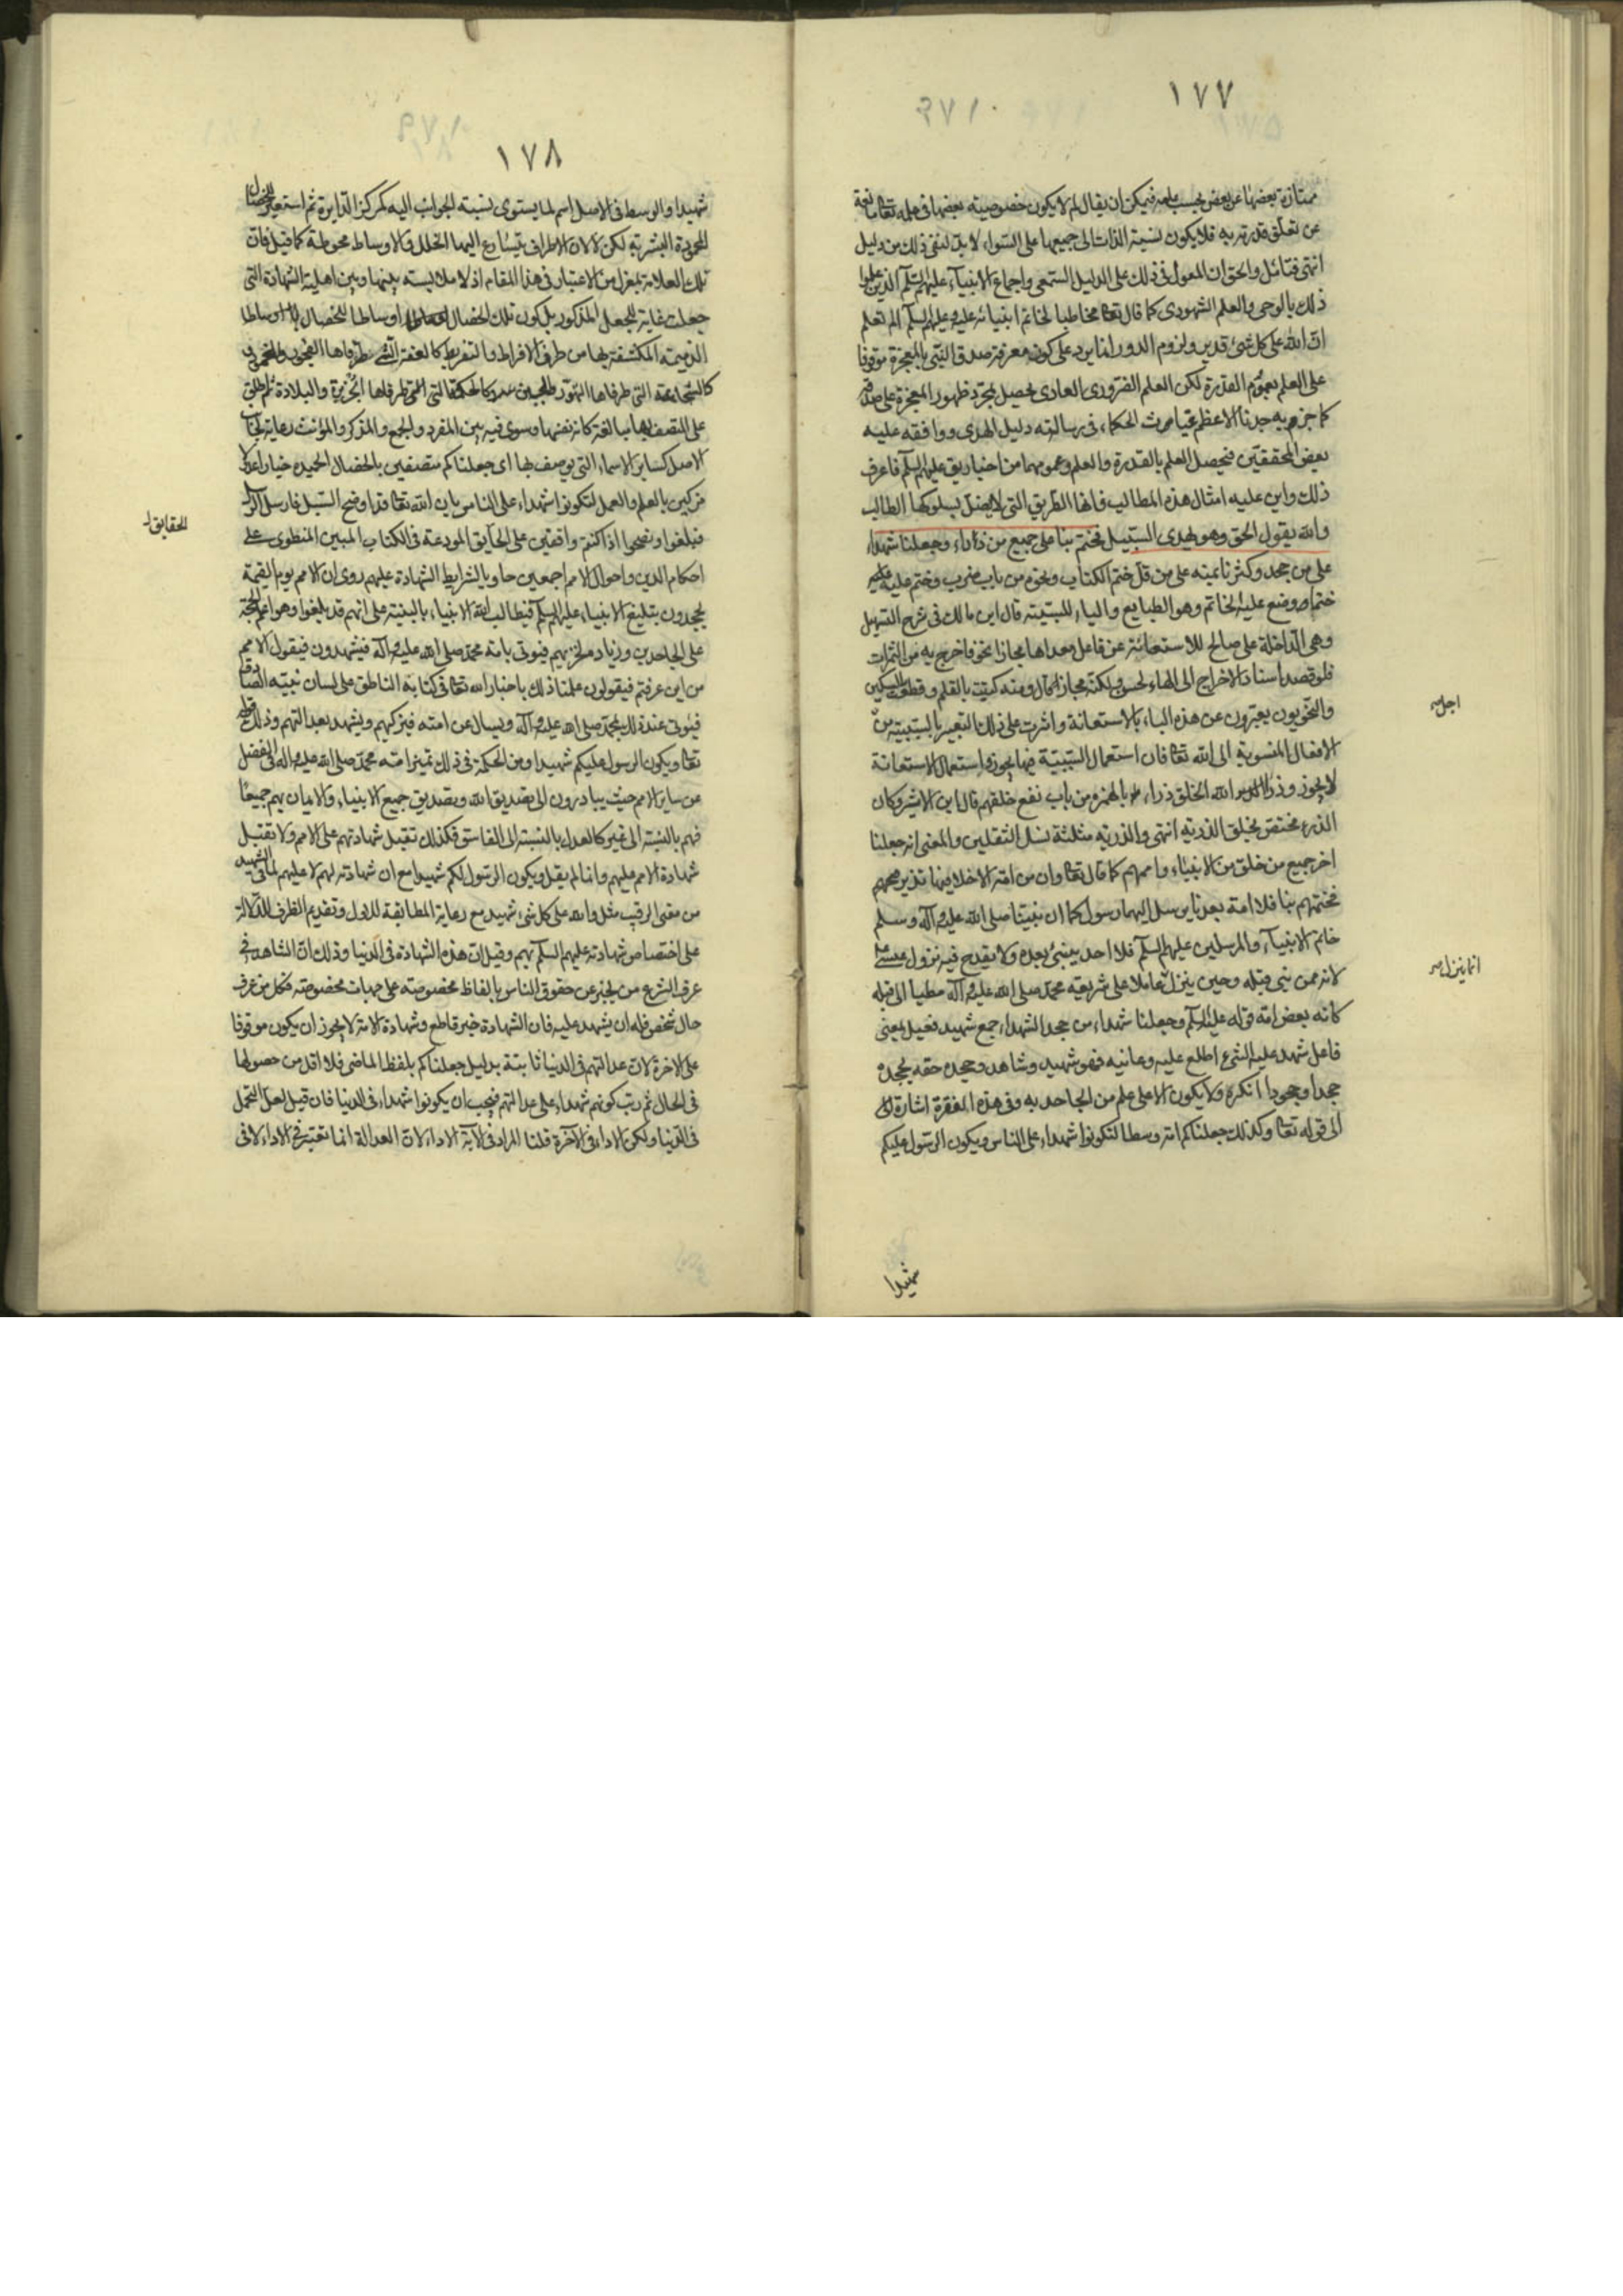 ١٧٧
ممتازة بعضها عن بعض بحسب علمه فيمكن ان يقال لم لا يكون خصوصية بعضها في علمه تعا مانعة
عن تعلق قدرته به فلا يكون نسبة الذات الى جميعها على السواء لا بد لنفى ذلك من دليل
انتهى فتامل والحق ان المعول في ذلك على الدليل السمعي واجماع الانبياء عليهم السلم الذين علموا
ذلك بالوحى والعلم الشهودى كما قال تعا مخاطبا لخاتم انبيائه عليه وعليهم السلم الم تعلم
ان الله على كل شئ قدير ولزوم الدور انما يرد على كون معرفة صدق النبى بالمعجزة موقوفا
على العلم بعموم القدرة لكن العلم الضرورى العادى يحصل بمجرد ظهور المعجزة على صدقه
كما جزم به جدنا الاعظم غياث الحكماء في رسالته دليل الهدى ووافقه عليه
بعض المحققين فيحصل العلم بالقدرة والعلم وعمومهما من اخباريق عليهم السلم فاعرف
ذلك وابن عليه امثال هذه المطالب فانها الطريق التى لا يضل بسلوكها الطالب
والله يقول الحق وهو يهدى السبيل فختم بنا على جميع من ذاراء وجعلنا شهداء
على من جحد وكثرنا بمنه على من قل ختم الكتاب ونحوه من باب ضرب وختم عليه
ختما وضع عليه الخاتم وهو الطابع والباء للسببية قال ابن مالك في شرح التسهيل
وهي الداخلة على صالح للاستعانة عن فاعل معداها مجازا نحو فاخرج به من الثمرات
فلو قصد اسناد الاخراج الى الهاء لحسن ولكنه مجاز قال ومنه كتبت بالقلم وقطعت بالسكين
والنحويون يعبرون عن هذه الباء بالاستعانة واثرت على ذلك التعبير بالسببية من
اجل صح
الافعال المنسوبة الى الله تعا فان استعمال السببية فيها يجوز واستعمال الاستعانة
لا يجوز وذرا الله الخلق ذراء بالهمز من باب نفع خلقهم قال ابن الاثير وكان
الذرء مختص بخلق الذرية انتهى والذرية مثلثة نسل الثقلين والمعنى انه جعلنا
اخر جميع من خلق من الانبياء واممهم كما قال تعا وان من امة الا خلا فيها نذير فجمعهم
فختمهم بنا فلا امة بعدنا يرسل اليها رسول كما ان نبينا صلى الله عليه وآله وسلم
خاتم الانبياء والمرسلين عليهم السلم فلا احد ينبئ بعده ولا يقدح فيه نزول عيسى
لانه ممن نبى قبله وحين ينزل عاملا على شريعة محمد صلى الله عليه وآله مصليا الى قبلته
انما ينزل صح
كانه بعض امته قوله عليه السلم وجعلنا شهداء من جحد الشهداء جمع شهيد فعيل بمعنى
فاعل شهد عليه الشئ اطلع عليه وعاينه فهو شهيد وشاهد وجحده حقه يجحده
جحدا وجحودا انكره ولا يكون الا على علم من الجاحد به وفي هذه الفقرة اشارة
الى قوله تعا وكذلك جعلناكم امة وسطا لتكونوا شهداء على الناس ويكون الرسول عليكم
شهيدا
١٧٨
شهيدا والوسط في الاصل اسم لما يستوى نسبة الجوانب اليه كمركز الدايرة ثم استعير للخصال
المحمودة البشرية لكن لا لان الاطراف يتسارع اليها الخلل والاوساط محوطة كما قيل فان
تلك العلاقة بمعزل من الاعتبار في هذا المقام اذ لا ملابسة بينها وبين اهلية الشهادة التى
جعلت غاية للجعل المذكور بل لكون تلك الخصال اوساطا للخصال
الذميمة المكتنفة بها من طرفي الافراط والتفريط كالعفة التى طرفاها الفجور والخمود
كالشجاعة التى طرفاها التهور والجبن وكالحكمة التى طرفاها الجربزة والبلادة ثم اطلق
على المتصف بها مبالغة كانه نفسها وسوى فيه بين المفرد والجمع والمذكر والمؤنث رعاية لجانب
الاصل كساير الاسماء التى يوصف بها اى جعلناكم متصفين بالخصال الحميدة خيارا عدولا
مزكين بالعلم والعمل لتكونوا شهداء على الناس بان الله تعا قد اوضح السبل فارسل الرسل
فبلغوا ونصحوا اذ اكنتم واقفين على الحايق المودعة في الكتاب المبين المنطوى على
الحقايق
احكام الدين واحوال الامم اجمعين حاويا لشرايط الشهادة عليهم روى ان الامم يوم القيمة
يجحدون بتبليغ الانبياء عليهم السلم فيطالب الله الانبياء بالبينة على انهم قد بلغوا وهو اعلم الحجة
على الجاحدين وزيادة لخزيهم فيوتى بامة محمد صلى الله عليه وآله فيشهدون فيقول الامم
من اين عرفتم فيقولون علمنا ذلك باخبار الله تعا في كتابه الناطق على لسان نبيه الصادق
فيوتى عند ذلك بمحمد صلى الله عليه وآله ويسال عن امته فيزكيهم ويشهد بعدالتهم وذلك قوله
تعا ويكون الرسول عليكم شهيدا ومن الحكمة في ذلك تميز امة محمد صلى الله عليه وآله في الفضل
عن ساير الامم حيث يبادرون الى تصديق الله وتصديق جميع الانبياء والايمان بهم جميعا
فهم بالنسبة الى غيرهم كالعدل بالنسبة الى الفاسق فكذلك تقبل شهادتهم على الامم ولا تقبل
شهادة الامم عليهم وانما لم يقل ويكون الرسول لكم شهيدا مع ان شهادته لهم لا عليهم لما في الشهيد
من معنى الرقيب مثل والله على كل شئ شهيد مع رعاية المطابقة للاول وتقديم الظرف للدلالة
على اختصاص شهادته عليهم السلم بهم وقيل ان هذه الشهادة في الدنيا وذلك ان الشاهد في
عرف الشرع من يخبر عن حقوق الناس بالفاظ مخصوصة على جهات مخصوصة فكل من عرف
حال شخص فله ان يشهد عليه فان الشهادة خبر قاطع وشهادة الامة لا يجوز ان يكون موقوفا
على الاخرة لان عدالتهم في الدنيا ثابتة بدليل جعلناكم بلفظ الماضى فلا اقل من حصولها
في الحال ثم رتب كونهم شهداء على عدالتهم فيجب ان يكونوا شهداء في الدنيا فان قيل لعل التحمل
في الدنيا ولكن الاداء في الآخرة قلنا المراد في الآية الاداء لان العدالة انما تعتبر في الاداء لا في